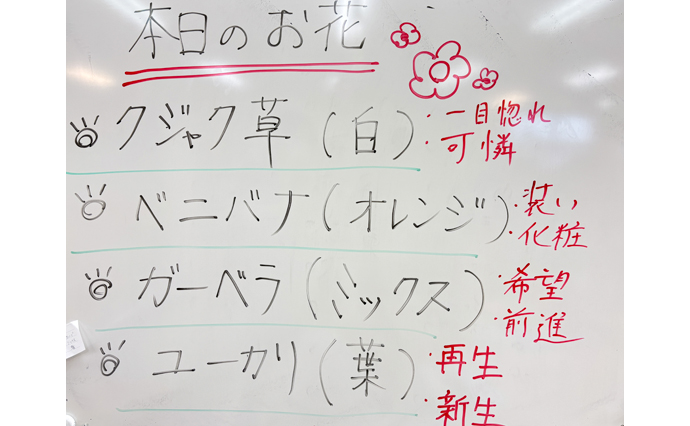 本日のお花
クジャク草(白)・一目惚れ
・可憐
ベニバナ(オレンジ)・装い
・化粧
ガーベラ(ミックス)・希望
・前進
ユーカリ(葉)・再生
・新生